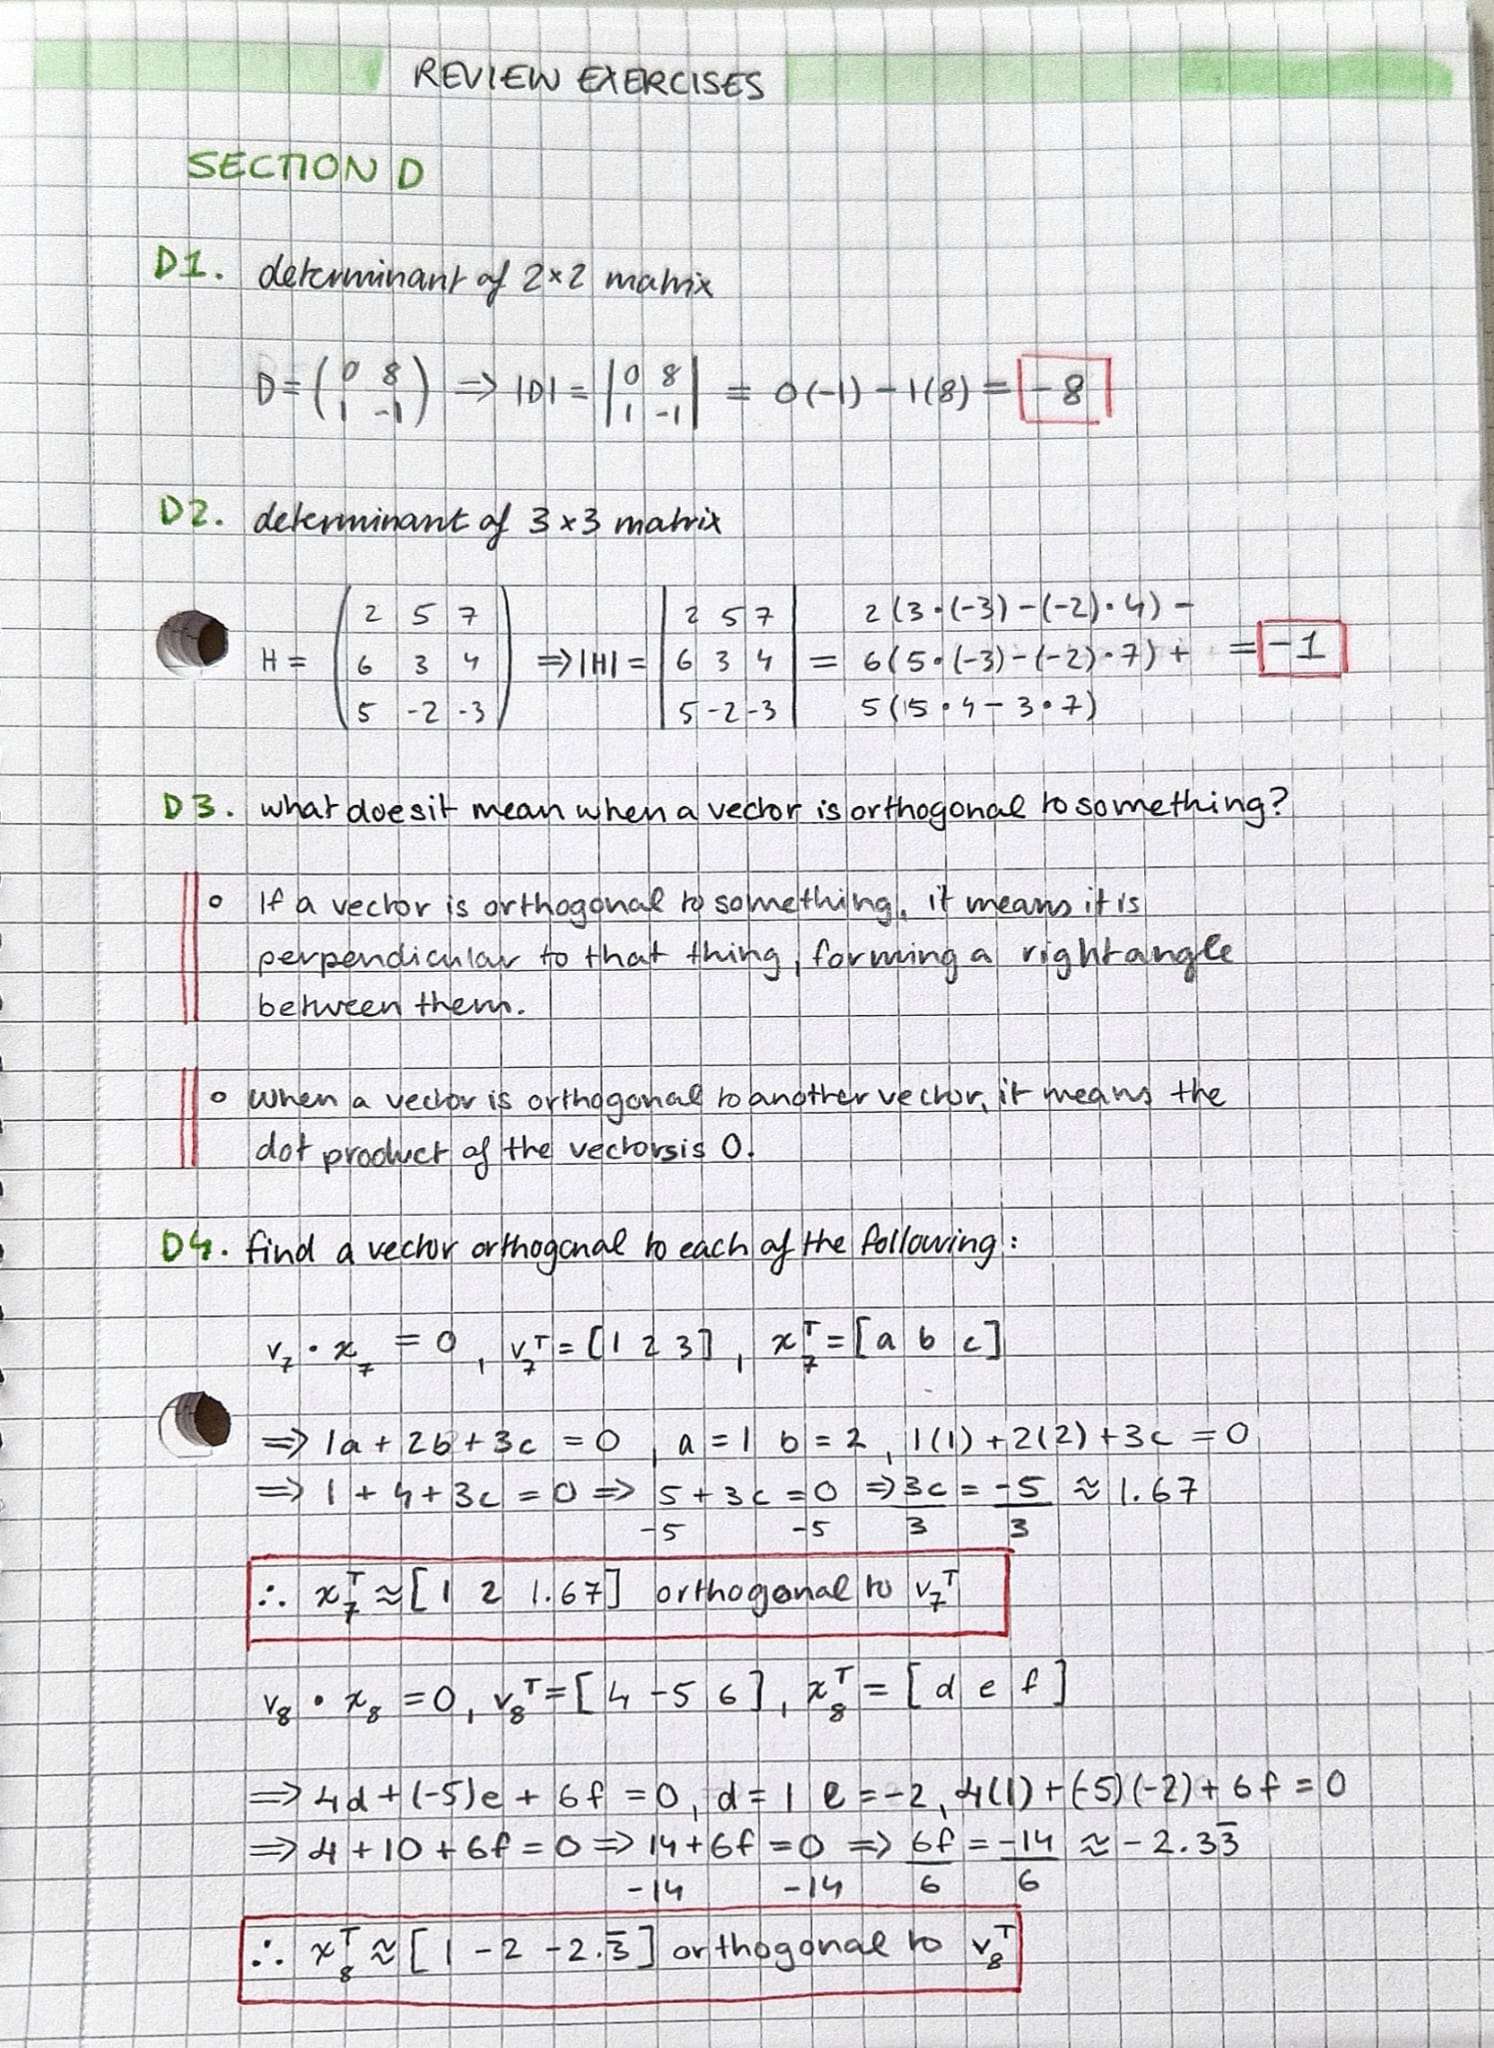 REVIEW EXERCISES
SECTION D
D1. determinant of 2×2 matrix
D = (0 8; 1 -1) ⇒ |D| = |0 8; 1 -1| = 0(-1) - 1(8) = -8
D2. determinant of 3×3 matrix
2 5 7 2 5 7 2(3·(-3)-(-2)·4) -
H = 6 3 4 ⇒ |H| = 6 3 4 = 6(5·(-3)-(-2)·7) + = -1
5 -2 -3 5 -2 -3 5(5·4 - 3·7)
D3. what does it mean when a vector is orthogonal to something?
∘ If a vector is orthogonal to something, it means it is
perpendicular to that thing, forming a right angle
between them.
∘ When a vector is orthogonal to another vector, it means the
dot product of the vectors is 0.
D4. find a vector orthogonal to each of the following:
v₇ · x₇ = 0, v₇ᵀ = [1 2 3], x₇ᵀ = [a b c]
⇒ 1a + 2b + 3c = 0, a = 1 b = 2, 1(1) + 2(2) + 3c = 0
⇒ 1 + 4 + 3c = 0 ⇒ 5 + 3c = 0 ⇒ 3c = -5 ≈ 1.67
-5 -5 3 3
∴ x₇ᵀ ≈ [1 2 1.67] orthogonal to v₇ᵀ
v₈ · x₈ = 0, v₈ᵀ = [4 -5 6], x₈ᵀ = [d e f]
⇒ 4d + (-5)e + 6f = 0, d = 1 e = -2, 4(1) + (-5)(-2) + 6f = 0
⇒ 4 + 10 + 6f = 0 ⇒ 14 + 6f = 0 ⇒ 6f = -14 ≈ -2.33̅
-14 -14 6 6
∴ x₈ᵀ ≈ [1 -2 -2.3̅] orthogonal to v₈ᵀ